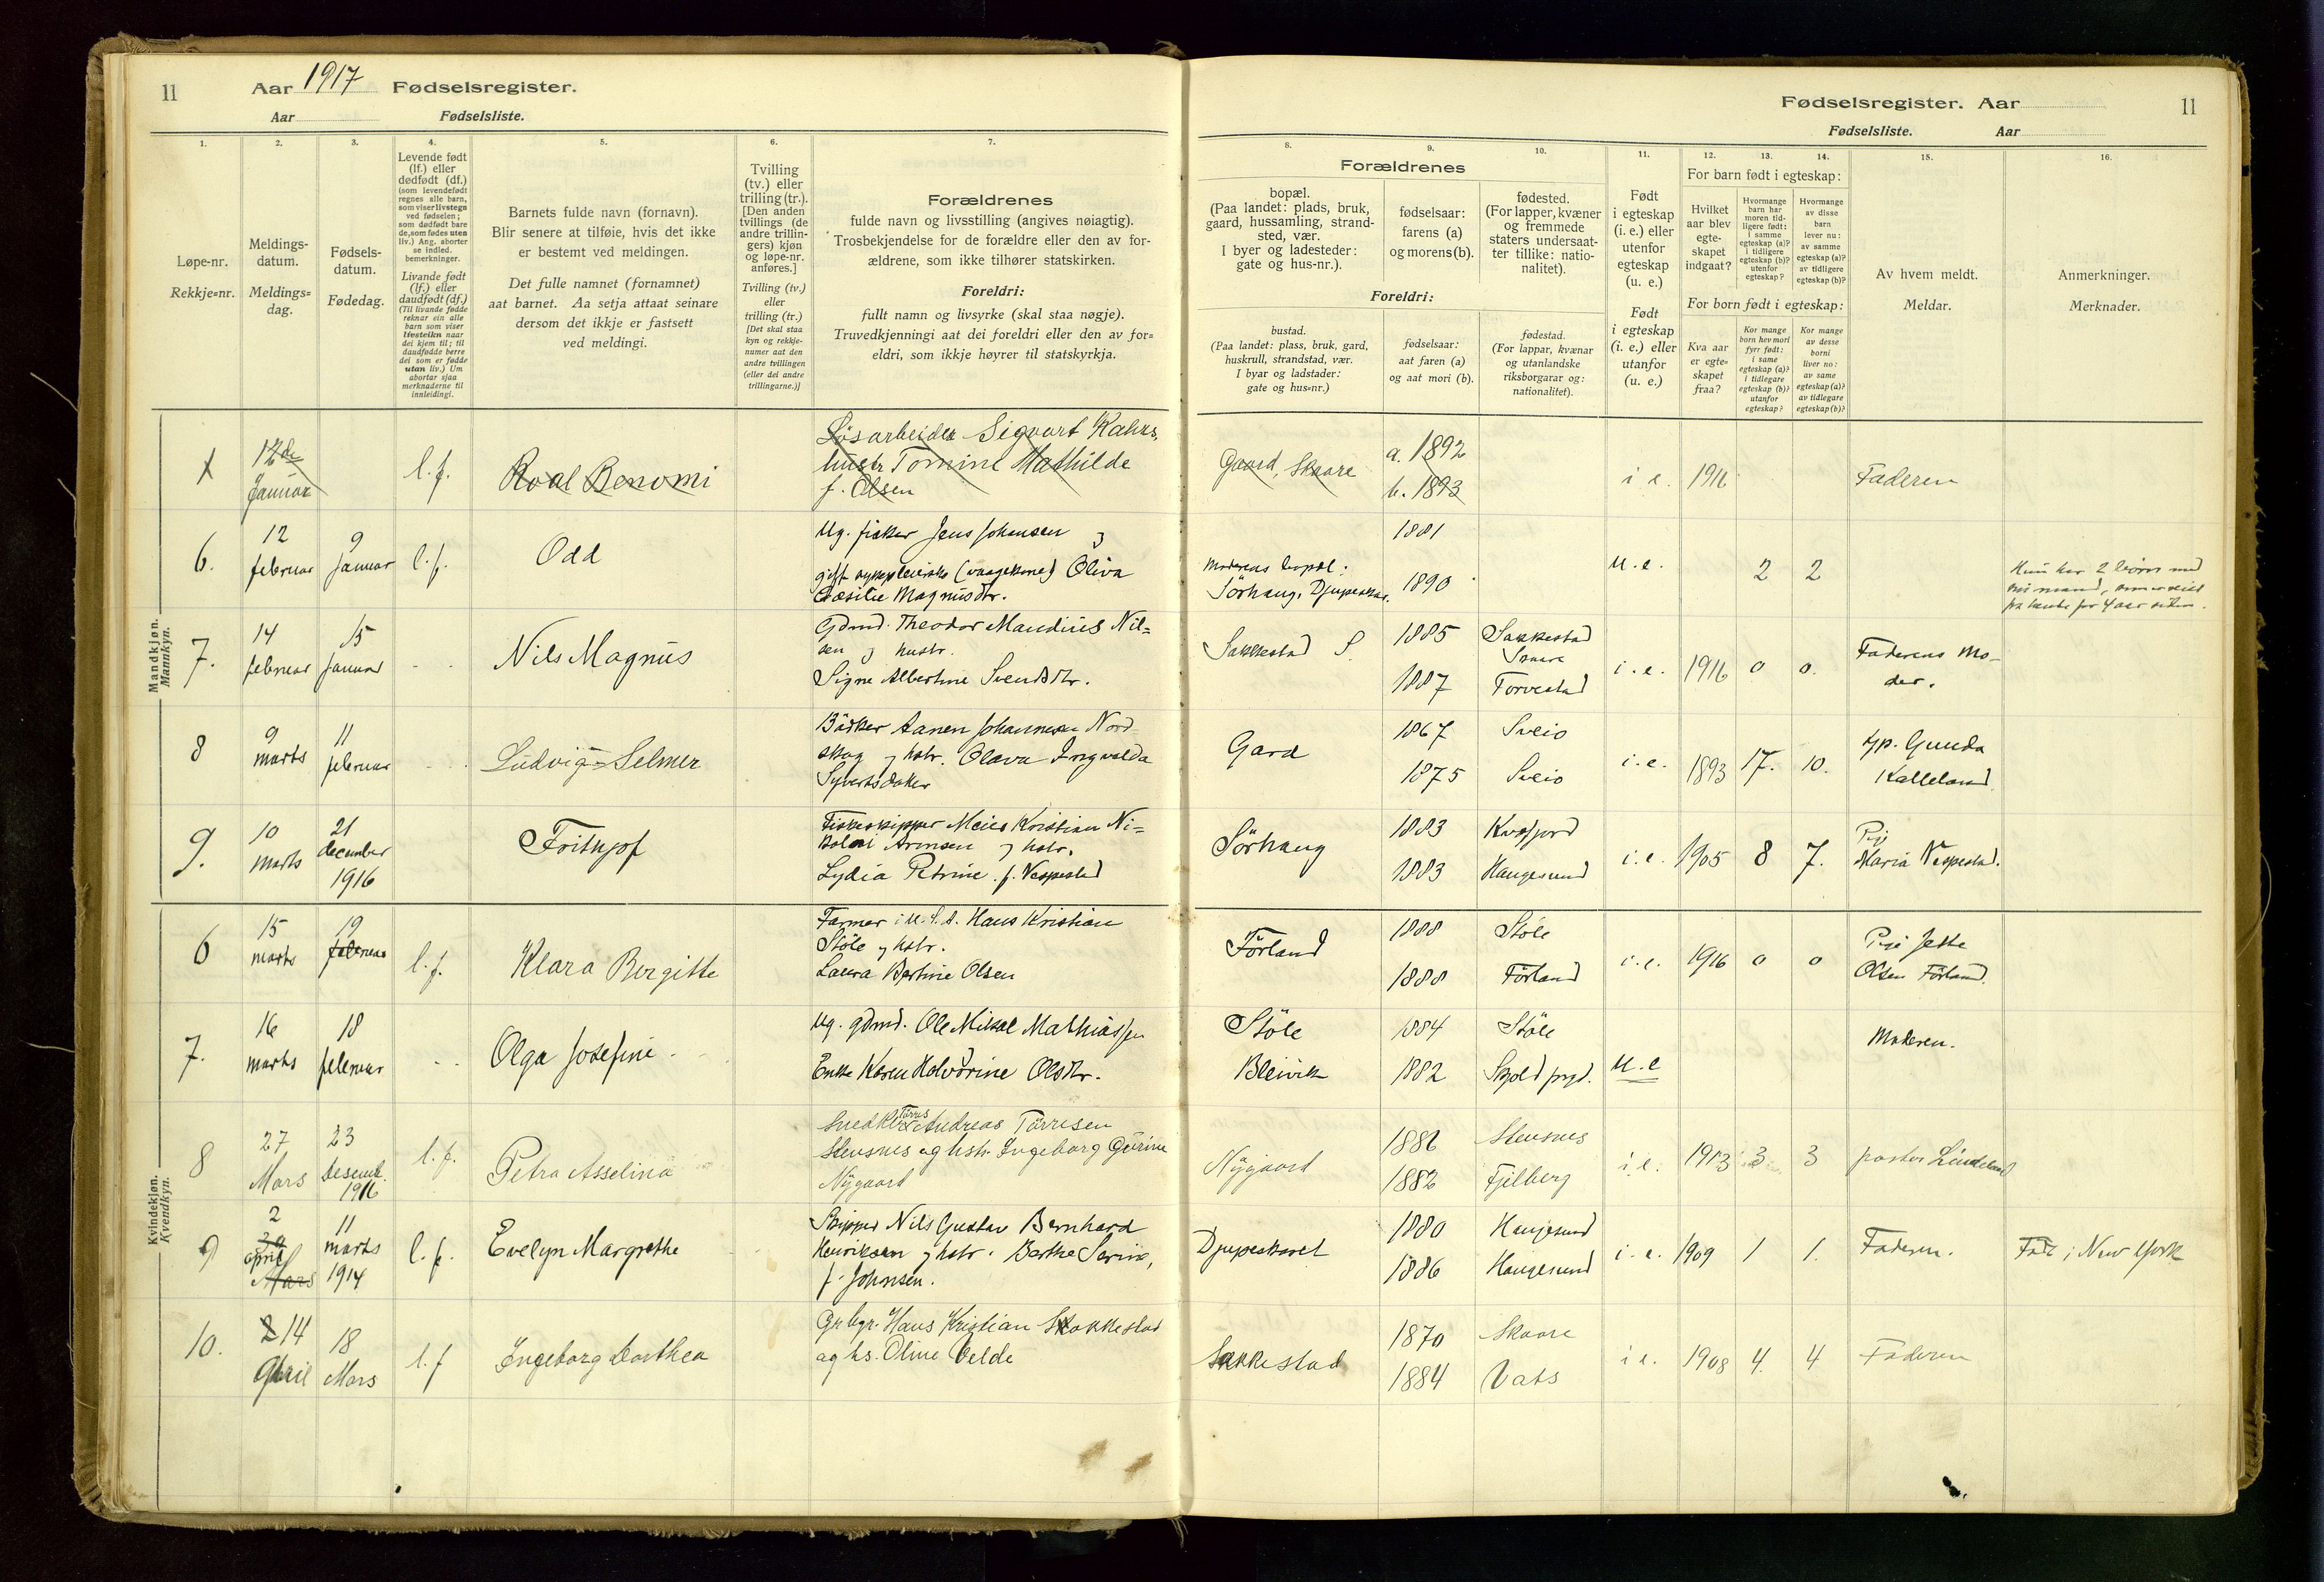 11 Aar 1917 Fødselsregister.
Aar Fødselsliste.
Fødselsregister. Aar 11
Fødselsliste. Aar
1.
Løpe-nr.
Rekkje=nr.
2.
Meldings-
datum.
Meldings=
dag.
3.
Fødsels-
datum.
Fødedag.
4.
Levende født
(lf.) eller
dødfødt (df.)
(som levendefødt
regnes alle barn,
som viser livstegn
ved fødselen;
som dødfødt bare
de, som fødes uten
liv.) Ang. aborter
se indled.
bemerkninger.
Livande født
(lf.) eller
daudfødt (df.)
(Til livande fødde
reknar ein alle
barn som viser
livsteikn naar
dei kjem til; til
daudfødde berre
dei som er fødde
utan liv.) Um
abortar sjaa
merknaderne til
innleidingi.
5.
Barnets fulde navn (fornavn).
Blir senere at tilføie, hvis det ikke
er bestemt ved meldingen.
Det fulle namnet (fornamnet)
aat barnet. Aa setja attaat seinare
dersom det ikkje er fastsett
ved meldingi.
6.
Tvilling
(tv.) eller
trilling (tr.).
[Den anden
tvillings (de
andre trillin-
gers) kjøn
og løpe-nr.
anføres.]
Tvilling (tv.)
eller
trilling (tr.)
[Det skal staa
kyn og rekkje-
numer aat den
andre tvillingen
(eller dei andre
trillingarne.)]
7.
Forældrenes
fulde navn og livsstilling (angives nøiagtig).
Trosbekjendelse for de forældre eller den av for-
ældrene, som ikke tilhører statskirken.
Foreldri:
fullt namn og livsyrke (skal staa nøgje).
Truvedkjenningi aat dei foreldri eller den av for=
eldri, som ikkje høyrer til statskyrkja.
Forældrenes
8.
bopæl.
(Paa landet: plads, bruk,
gaard, hussamling, strand-
sted, vær.
I byer og ladesteder:
gate og hus-nr.).
9.
fødselsaar:
farens (a)
og morens (b).
10.
fødested.
(For lapper, kvæner
og fremmede
staters undersaat-
ter tillike: natio-
nalitet).
Foreldri:
bustad.
(Paa landet: plass, bruk, gard,
huskrull, strandstad, vær.
I byar og ladstader:
gate og hus-nr.)
fødselsaar:
aat faren (a)
og aat mori (b).
fødestad.
(For lappar, kvænar
og utanlandske
riksborgarar og:
nationalitet).
11.
Født
i egteskap
(i. e.) eller
utenfor
egteskap
(u. e.)
Født
i egteskap
(i. e.) eller
utanfor
(u. e.)
12. 13. 14.
For barn født i egteskap:
Hvilket
aar blev
egte-
skapet
indgaat?
Hvormange
barn har
moren tid-
ligere født:
i samme
egteskap (a)?
i tidligere
egteskap (b)?
utenfor
egteskap?
Hvormange
av disse
barn
lever nu:
av samme
egteskap (a)?
av tidligere
egteskap (b)?
For born født i egteskap:
Kva aar
er egte=
skapet
fraa?
Kor mange
born hev mori
fyrr født:
i same
egteskap (a)?
i tidlegare
egteskap (b)?
utanfor
egteskap?
Kor mange
av desse
borni
liver no:
av same
egteskap (a)?
av tidlegare
egteskap (b)?
15.
Av hvem meldt.
Meldar.
16.
Anmerkninger.
Merknader.
Mandkjøn.
Mannkyn.
12de
Januar
l. f.
Roal Benomi
Løsarbeider Sigvart
hustr Tomine Mathilde
f. Olsen
Gaard, Skaare
a. 1892
b. 1893
i e. 1916 Faderen
6.
12
februar
9
Januar
l. f.
Odd
Ug. fisker Jens Johansen
gift sykepleierske (vaagekone) Oliva
Magnusdtr.
Moderens bopæl:
Sörhaug, Djupeskar.
1881
1890
u. e. 2 2
Hun har 2 börn med
7.
14
februar
15
Januar
Nils Magnus
Gdmd. Theodor Maudius Nil=
sen og hustr.
Signe Albertine Svendsdtr.
Sakkestad S.
1885 Sakkestad
Skaare
1887 Torvestad
i. e. 1916 0 0.
Faderens Mo-
der.
8
9
marts
11
februar
Ludvig=Selmer
Bödker Aanen Johannesen Nord-
skog og hstr. Olava Ingvalda
Syvertsdatter
Gard
1867 Sveio
1875 Sveio
i. e. 1893 17. 10.
Gunda
Kalleland.
9.
10
marts
21
december
1916
Frithjof
Fiskeskipper Meier Kristian Ni=
kolai Arnsen og hstr.
Lydia Petrine f. Vespestad
Sörhaug
1883 Kvæfjord
1883 Haugesund
i. e. 1905 8 7.
Pige
Maria Vespestad.
Kvindekjøn.
Kvendkyn.
6
15
marts
19
februar
l. f.
Klara Bergitte
Farmer i U. S. A. Hans Kristian
Stöle og hstr.
Laura Bertine Olsen
Förland
1888 Stöle
1888 Förland
i. e. 1916 0 0
Pige Jette
Olsen Förland.
7.
16
marts
18
februar
Olga Josefine
Ug. gdmd. Ole Mikal Mathiassen
Enke Karen Halvorine Olsdtr.
Stöle
Bleivik
1884 Stöle
1882 Skjold prgd.
u. e
Moderen.
8
27
Mars
23
Desemb.
1916
l. f.
Petra Asselina
Snedker Törres Andreas Törresen
Stensnes og hstr. Ingeborg Gurine
Nygaard
Nygaard
1886 Stensnes
1882 Fjelberg
i. e. 1913 3 3 pastor Lindeland
9
2
april
Mars
11
marts
1914
l. f.
Evelyn Margrethe
Skipper Nils Gustav Bernhard
Henriksen og hstr. Berthe Serine,
f. Johnsen.
Djupeskaret
1880 Haugesund
1886 Haugesund
i. e. 1909 1 1. Faderen. Född i New York
10.
2 14
April
18
Mars
l. f
Ingeborg Dorthea
Grbgr. Hans Kristian Sakkestad
og hs. Oline Velde
Sakkestad
1870 Skaare
1884 Vats
i e. 1908 4. 4 Faderen